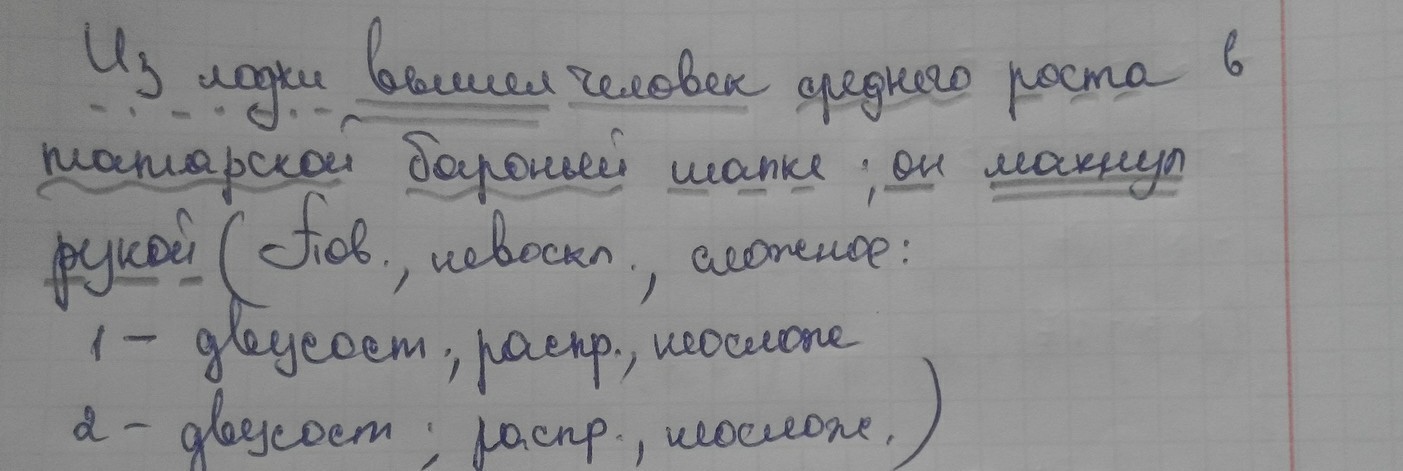 Из лодки вышел человек среднего роста в
татарской бараньей шапке ; он махнул
рукой ( Пов., невоскл., сложное:
1 - двусост., распр., неослож
2 - двусост., распр., неослож.)